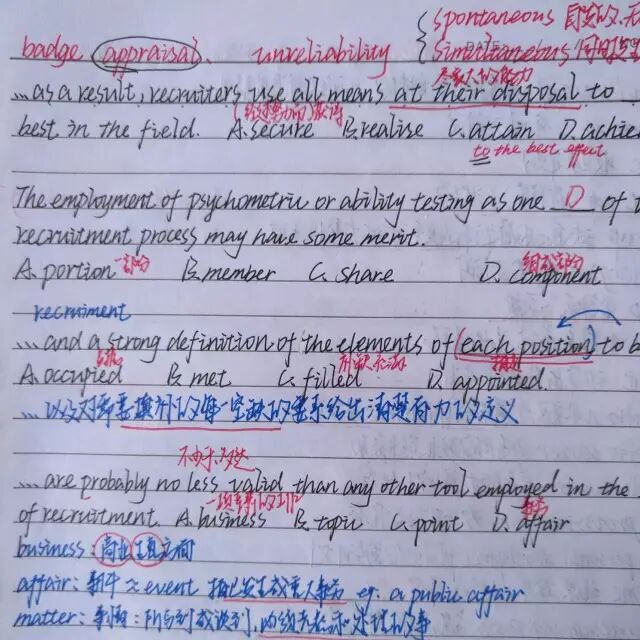 spontaneous 自发的
badge appraisal unreliability simultaneous 同时发生
尽某人的能力
...as a result, recruiters use all means at their disposal to
best in the field. A.secure B.realise C.attain D.achie
to the best effect
The employment of psychometric or ability testing as one D of t
recruitment process may have some merit.
A.portion 一部分 B.member C.share D.component 组成部分
recruiment
...and a strong definition of the elements of (each position) to b
A.occupied B.met C.filled D.appointed
...以及对需要填补的每一空缺的要素给出清楚有力的定义
...are probably no less valid than any other tool employed in the
of recruitment. A.business B.topic C.point D.affair
business: 商业
affair: 事件 ≈ event 指已发生或某人事务 eg. a public affair
matter: